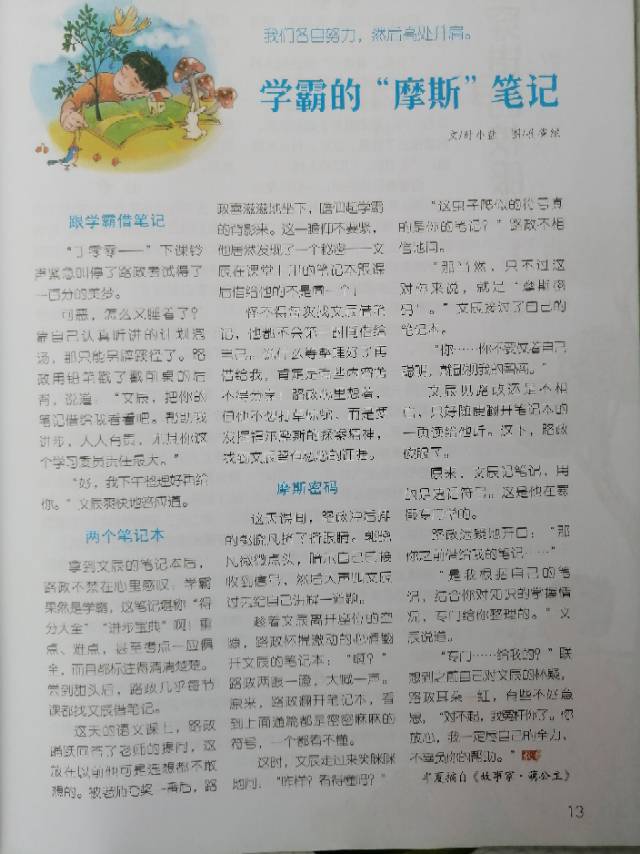 我们各自努力，然后高处并肩。
学霸的“摩斯”笔记
文/时小
跟学霸借笔记
“丁零零——”下课铃
声紧急叫停了路政考试得了
一百分的美梦。
可恶，怎么又睡着了？
靠自己认真听讲的计划泡
汤，那只能另辟蹊径了。路
政用铅笔戳了戳前桌的后
背，说道：“文辰，把你的
笔记借给我看看吧。帮助我
进步，人人有责，尤其你这
个学习委员责任最大。”
“好，我下午整理好再给
你。”文辰爽快地答应道。
两个笔记本
拿到文辰的笔记本后，
路政不禁在心里感叹：学霸
果然是学霸，这笔记堪称“得
分大全”“进步宝典”啊！重
点、难点，甚至考点一应俱
全，而且都标注得清清楚楚。
尝到甜头后，路政几乎每节
课都找文辰借笔记。
这天的语文课上，路政
踊跃回答了老师的提问，这
放在以前他可是连想都不敢
想的。被老师夸奖一番后，路
政喜滋滋地坐下，瞻仰起学霸
的背影来。这一瞻仰不要紧，
他居然发现了一个秘密——文
辰在课堂上记的笔记本跟课
后借给他的不是同一个！
怪不得每次找文辰借笔
记，他都不会第一时间借给
自己，说什么等整理好了再
借给我，肯定是有些内容他
不想分享！路政心里想着，
但他不想打草惊蛇，而是要
发挥福尔摩斯的探案精神，
找到文辰留有私心的证据。
摩斯密码
这天课间，路政冲后排
的郭晓凡挤了挤眼睛。郭晓
凡微微点头，暗示自己已接
收到信号，然后大声叫文辰
过去给自己讲解一道题。
趁着文辰离开座位的空
隙，路政怀揣激动的心情翻
开文辰的笔记本：“啊？”
路政两眼一瞪，大喊一声。
原来，路政翻开笔记本，看
到上面通篇都是密密麻麻的
符号，一个都看不懂。
这时，文辰走过来笑眯眯
地问：“咋样？看得懂吧？”
“这虫子爬似的符号真
的是你的笔记？”路政不相
信地问。
“那当然，只不过这
对你来说，就是‘摩斯密
码’。”文辰接过了自己的
笔记本。
“你……你不要仗着自己
聪明，就忽视我的智商。”
文辰见路政还是不相
信，只好随便翻开笔记本的
一页读给他听。这下，路政
彻底服了。
原来，文辰记笔记，用
的是速记符号。这是他在寒
假专门学的。
路政迟疑地开口：“那
你之前借给我的笔记……”
“是我根据自己的笔
记，结合你对知识的掌握情
况，专门给你整理的。”文
辰说道。
“专门……给我的？”联
想到之前自己对文辰的怀疑，
路政耳朵一红，有些不好意
思，“对不起，我错怪你了。你
放心，我一定尽自己的全力，
不辜负你的帮助。”
半夏摘自《故事家·蒋公主》
13